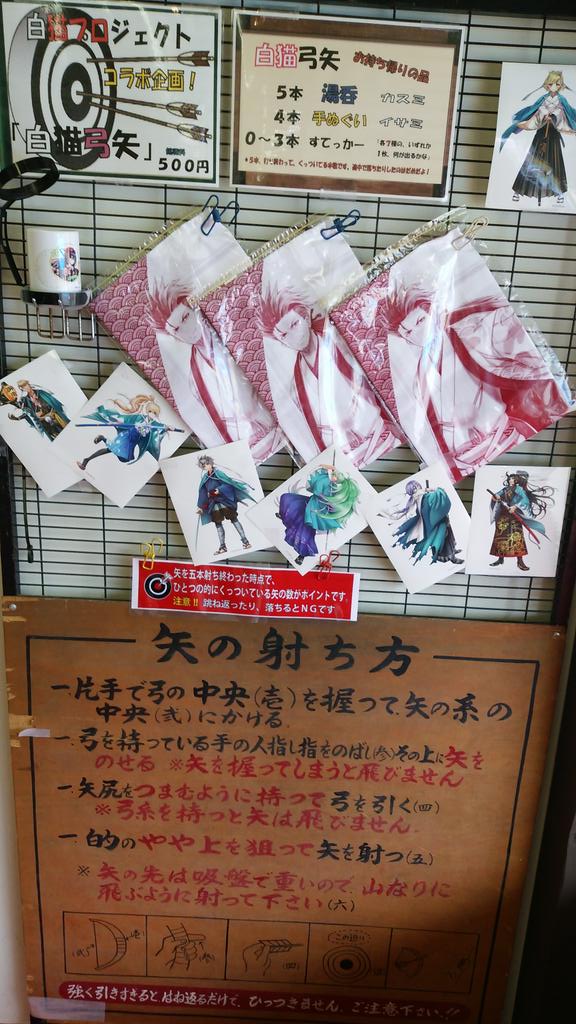 白猫プロジェクト
コラボ企画!
「白猫弓矢」
500円
白猫弓矢 お持ち帰りの品
5本 湯呑 カスミ
4本 手ぬぐい イサミ
0〜3本 すてっかー
矢を五本射ち終わった時点で、
ひとつの的にくっついている矢の数がポイントです。
注意!! 跳ね返ったり、落ちるとNGです
矢の射ち方
一.片手で弓の中央(壱)を握って、矢の糸の
中央(弐)にかける。
一.弓を持っている手の人指し指をのばし(参)その上に矢を
のせる ※矢を握ってしまうと飛びません
一.矢尻をつまむように持って弓を引く(四)
※弓糸を持つと矢は飛びません。
一.的のやや上を狙って矢を射つ(五)
※矢の先は吸盤で重いので、山なりに
飛ぶように射って下さい(六)
この辺り!
強く引きすぎるとはね返るだけで、ひっつきません。ご注意下さい!!